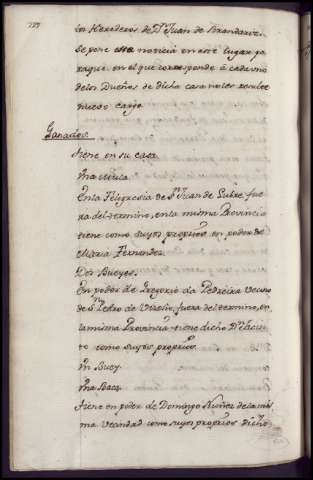 los Herederos de Dn. Juan de Brandariz.
se pone esta noticia en este lugar pa
raque en el que corresponde à cadauno
delos Dueños de dicha casa no les resulte
nuebo cargo
Ganados.
tiene en su casa
Una Mula
En la Feligresia de Sn. Juan de Lubre, fue
ra del termino, en la misma Provincia
tiene como suyos propios en poder de
Maria Fernandez
Dos Bueyes.
En poder de Gregorio da Pedreira Vecino
de Sn. Pedro de fuera del termino, en
la misma Provincia tiene dicho Dn.
to como suyos propios.
Un Buey
Una Baca
tiene en poder de Domingo Nuñez dela mis
ma Vecindad como suyos propios dicho